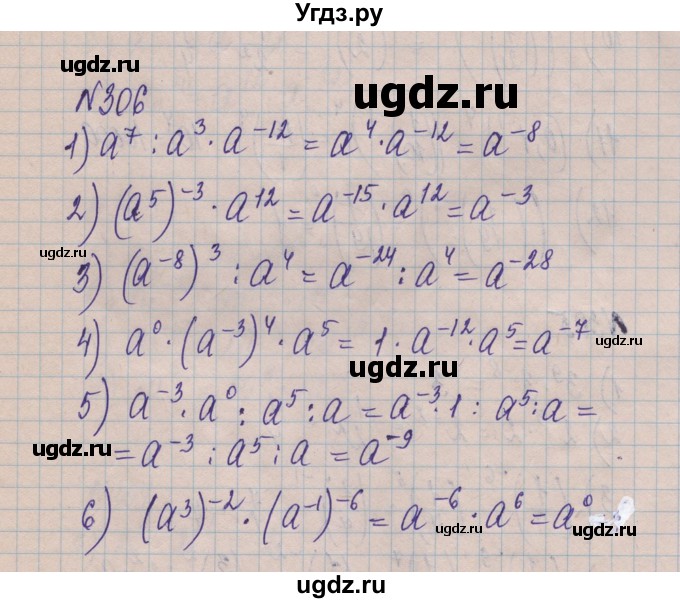 Угдз.ру
ugdz.ru
ugdz.ru
№306
1) a⁷ : a³ · a⁻¹² = a⁴ · a⁻¹² = a⁻⁸
2) (a⁵)⁻³ · a¹² = a⁻¹⁵ · a¹² = a⁻³
ugdz.ru
ugdz.ru
3) (a⁻⁸)³ : a⁴ = a⁻²⁴ : a⁴ = a⁻²⁸
4) a⁰ · (a⁻³)⁴ · a⁵ = 1 · a⁻¹² · a⁵ = a⁻⁷
ugdz.ru
ugdz.ru
5) a⁻³ · a⁰ : a⁵ : a = a⁻³ · 1 : a⁵ : a =
ugdz.ru
= a⁻³ : a⁵ : a = a⁻⁹
6) (a³)⁻² · (a⁻¹)⁻⁶ = a⁻⁶ · a⁶ = a⁰
ugdz.ru
ugdz.ru
ugdz.ru